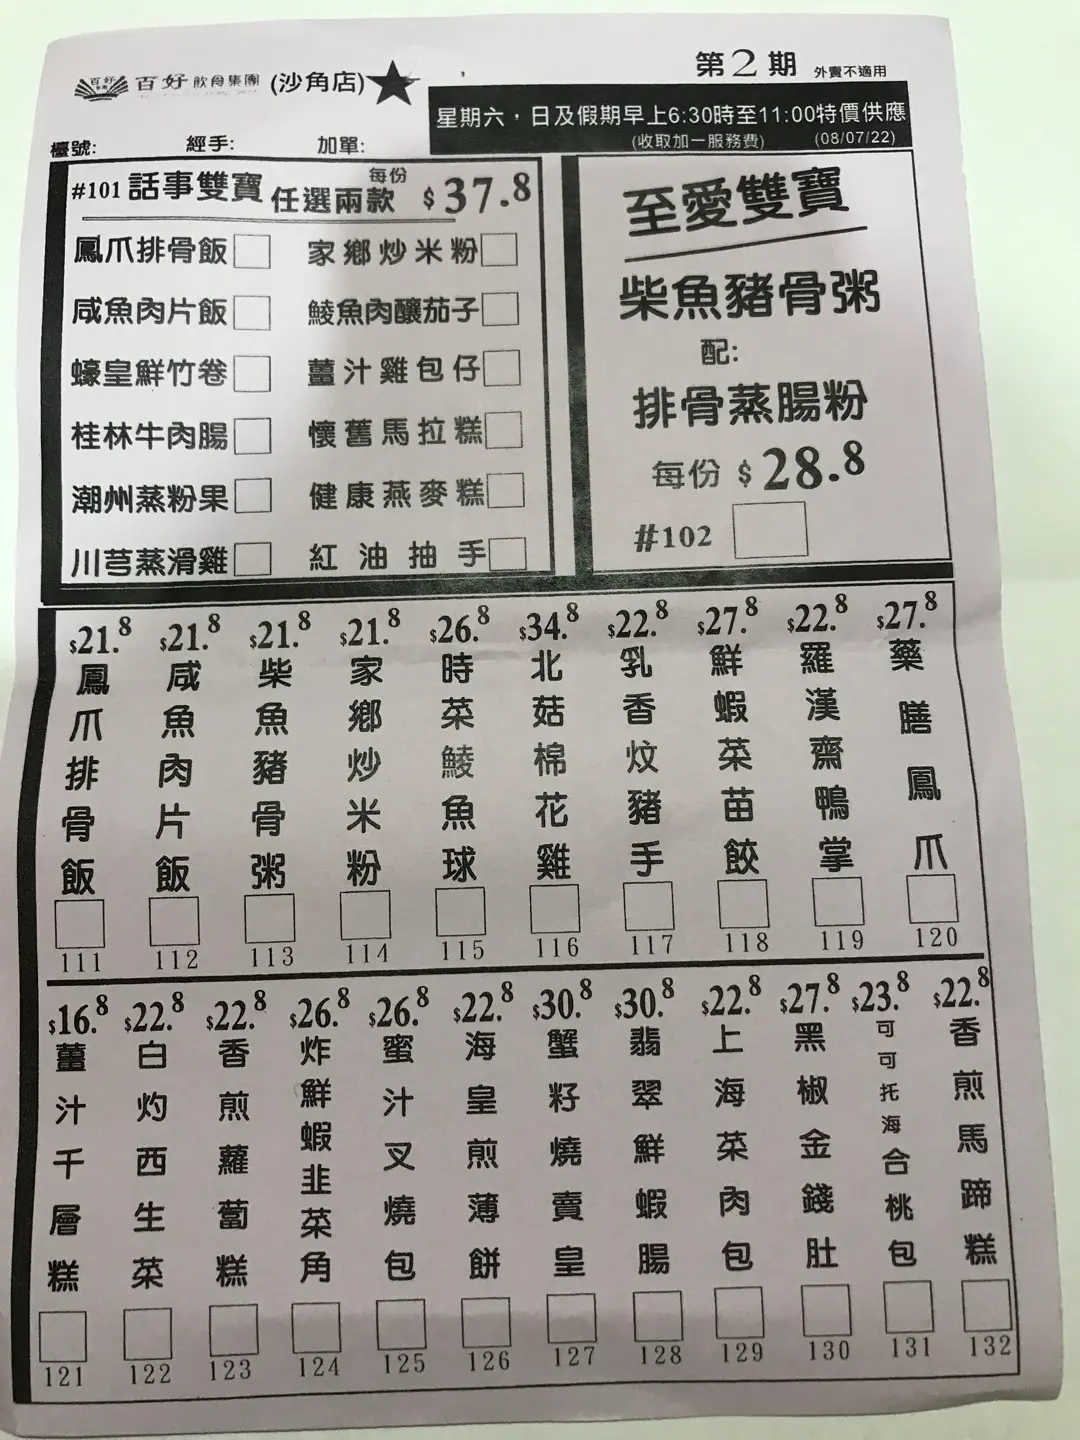 百好 飲食集團 (沙角店)★
第2期 外賣不適用
星期六，日及假期早上6:30時至11:00特價供應
(收取加一服務費) (08/07/22)
檯號: 經手: 加單:
#101 話事雙寶 任選兩款 每份 $37.8
鳳爪排骨飯 家鄉炒米粉
咸魚肉片飯 鯪魚肉釀茄子
蠔皇鮮竹卷 薑汁雞包仔
桂林牛肉腸 懷舊馬拉糕
潮州蒸粉果 健康燕麥糕
川芎蒸滑雞 紅油抽手
至愛雙寶
柴魚豬骨粥
配:
排骨蒸腸粉
每份 $28.8
#102
$21.8 鳳爪排骨飯 111
$21.8 咸魚肉片飯 112
$21.8 柴魚豬骨粥 113
$21.8 家鄉炒米粉 114
$26.8 時菜鯪魚球 115
$34.8 北菇棉花雞 116
$22.8 乳香炆豬手 117
$27.8 鮮蝦菜苗餃 118
$22.8 羅漢齋鴨掌 119
$27.8 藥膳鳳爪 120
$16.8 薑汁千層糕 121
$22.8 白灼西生菜 122
$22.8 香煎蘿蔔糕 123
$26.8 炸鮮蝦韭菜角 124
$26.8 蜜汁叉燒包 125
$22.8 海皇煎薄餅 126
$30.8 蟹籽燒賣皇 127
$30.8 翡翠鮮蝦腸 128
$22.8 上海菜肉包 129
$27.8 黑椒金錢肚 130
$23.8 可可托海合桃包 131
$22.8 香煎馬蹄糕 132